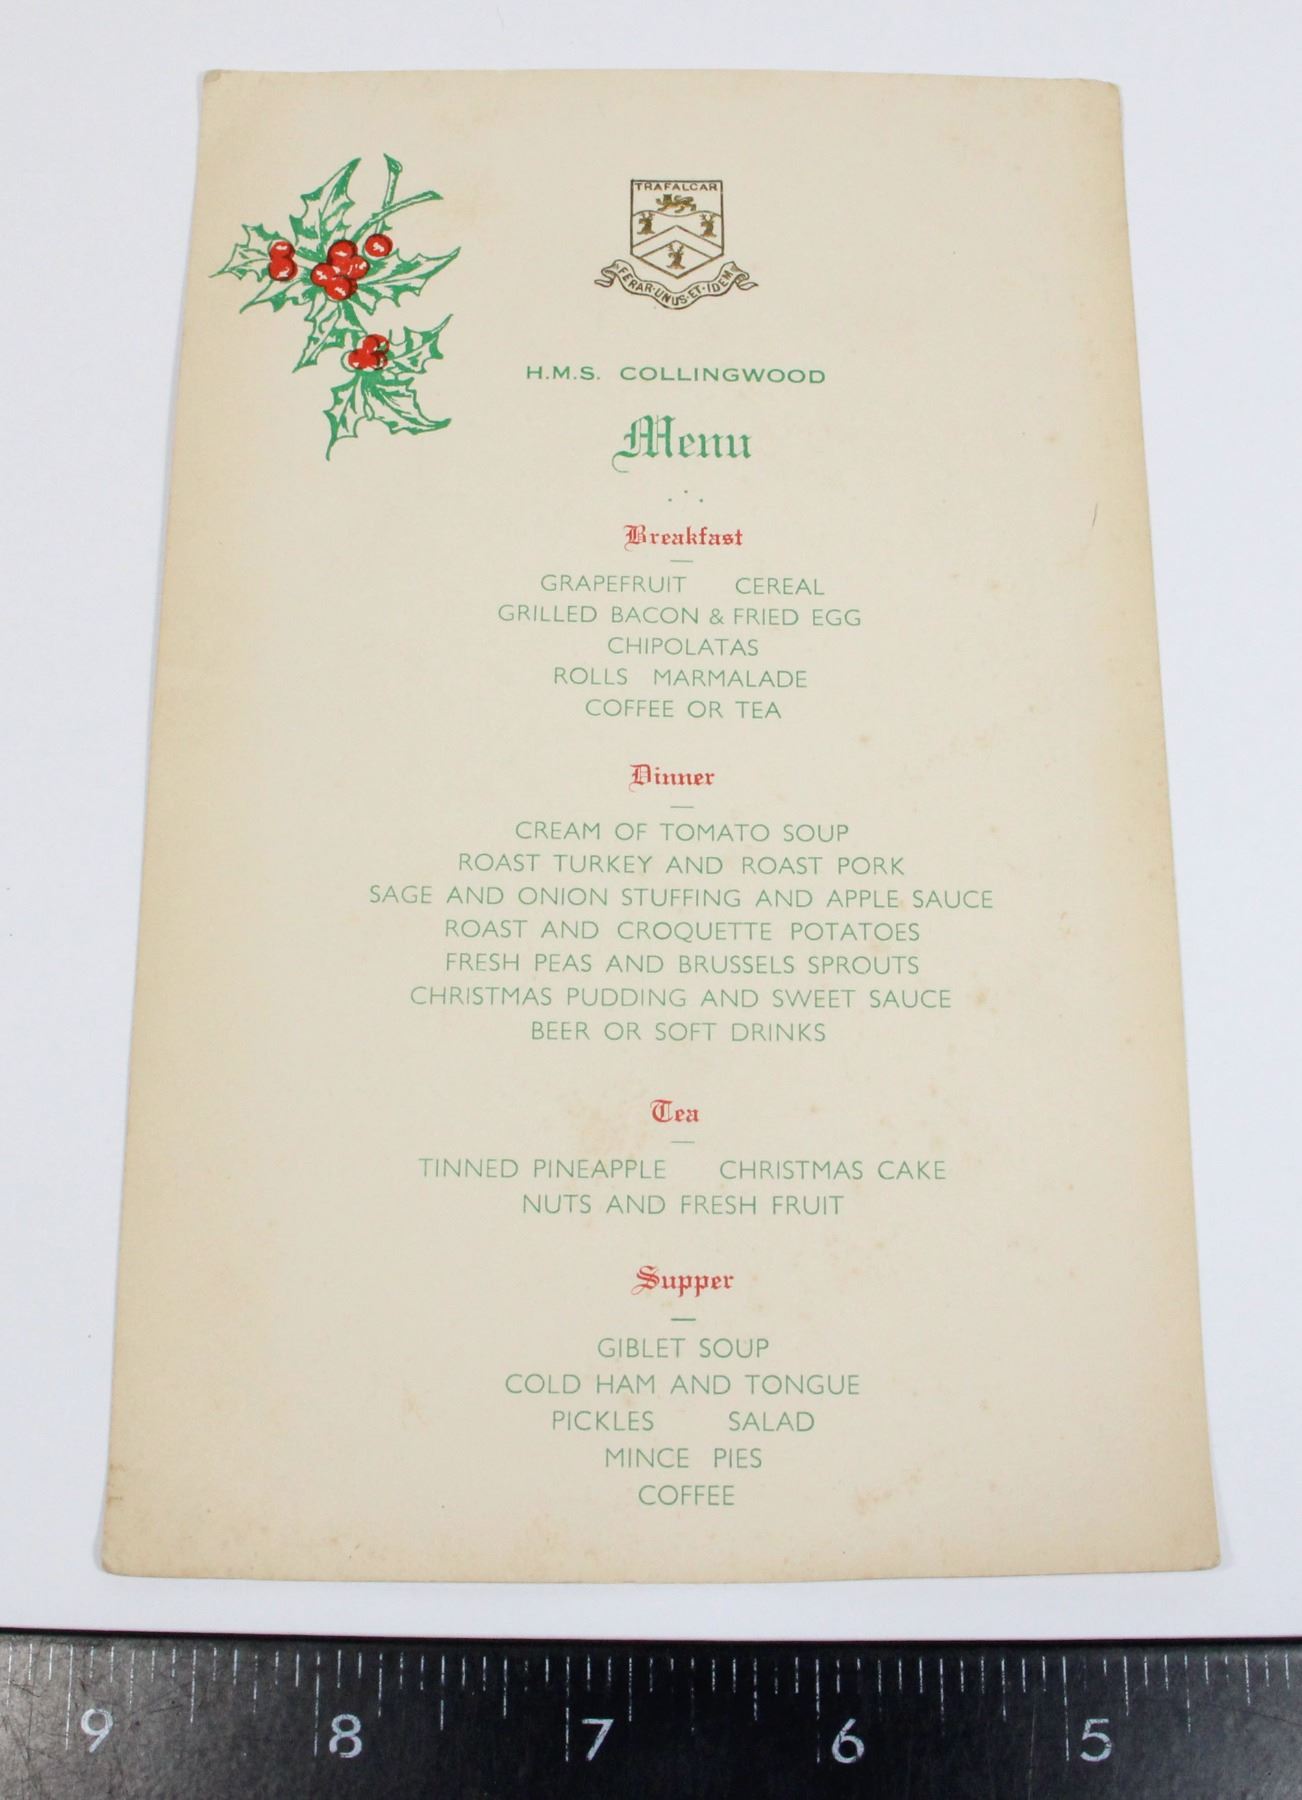 TRAFALGAR
FERAR·UNUS·ET·IDEM
H.M.S. COLLINGWOOD
Menu
Breakfast
GRAPEFRUIT CEREAL
GRILLED BACON & FRIED EGG
CHIPOLATAS
ROLLS MARMALADE
COFFEE OR TEA
Dinner
CREAM OF TOMATO SOUP
ROAST TURKEY AND ROAST PORK
SAGE AND ONION STUFFING AND APPLE SAUCE
ROAST AND CROQUETTE POTATOES
FRESH PEAS AND BRUSSELS SPROUTS
CHRISTMAS PUDDING AND SWEET SAUCE
BEER OR SOFT DRINKS
Tea
TINNED PINEAPPLE CHRISTMAS CAKE
NUTS AND FRESH FRUIT
Supper
GIBLET SOUP
COLD HAM AND TONGUE
PICKLES SALAD
MINCE PIES
COFFEE
9 8 7 6 5